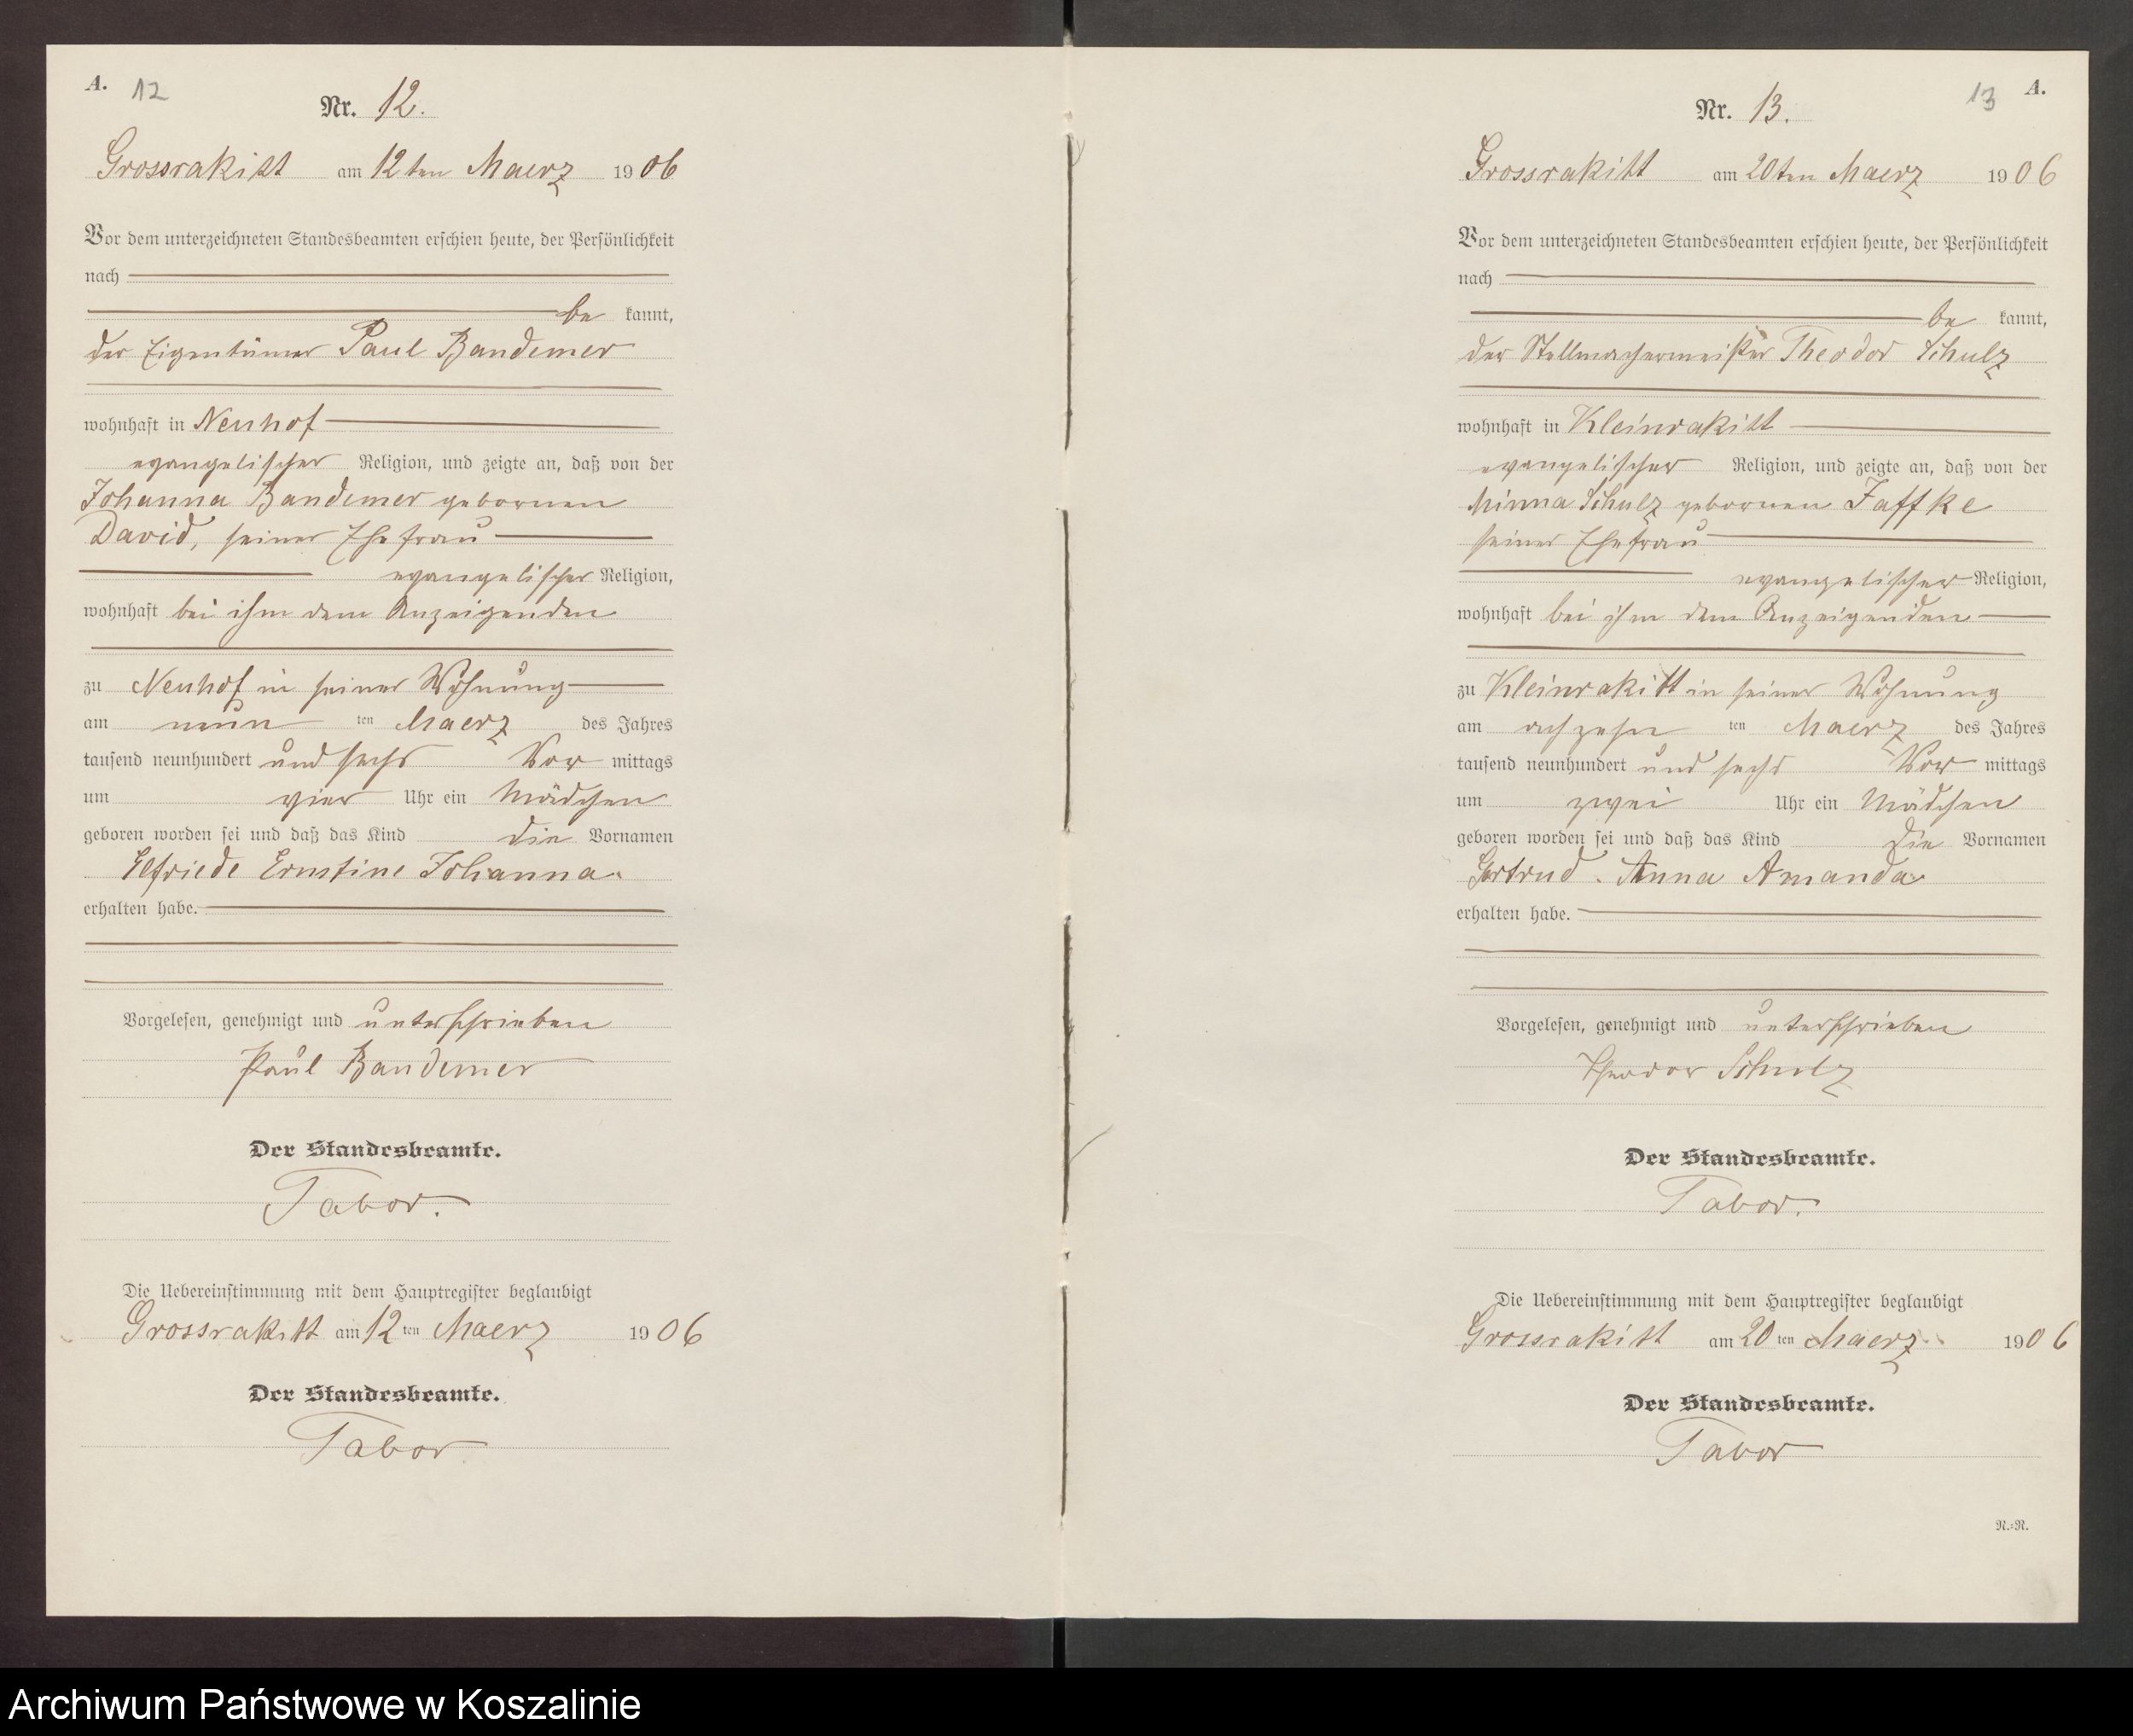 A. 12
Nr. 12.
Grossrakitt am 12ten Maerz 1906
Vor dem unterzeichneten Standesbeamten erschien heute, der Persönlichkeit
nach
be kannt,
der Eigentümer Paul Bandemer
wohnhaft in Neuhof
evangelischer Religion, und zeigte an, daß von der
Johanna Bandemer gebornen
David, seiner Ehefrau
evangelischer Religion,
wohnhaft bei ihm dem Anzeigenden
zu Neuhof in seiner Wohnung
am neun ten Maerz des Jahres
tausend neunhundert und sechs Vor mittags
um vier Uhr ein Mädchen
geboren worden sei und daß das Kind die Vornamen
Elfriede Ernstine Johanna.
erhalten habe.
Vorgelesen, genehmigt und unterschrieben
Paul Bandemer
Der Standesbeamte.
Tabor.
Die Uebereinstimmung mit dem Hauptregister beglaubigt
Grossrakitt am 12 ten Maerz 1906
Der Standesbeamte.
Tabor
13 A.
Nr. 13.
Grossrakitt am 20ten Maerz 1906
Vor dem unterzeichneten Standesbeamten erschien heute, der Persönlichkeit
nach
be kannt,
der Stellmachermeister Theodor Schulz
wohnhaft in Kleinrakitt
evangelischer Religion, und zeigte an, daß von der
Minna Schulz gebornen Jaffke
seiner Ehefrau
evangelischer Religion,
wohnhaft bei ihm dem Anzeigenden
zu Kleinrakitt in seiner Wohnung
am achzehn ten Maerz des Jahres
tausend neunhundert und sechs Vor mittags
um zwei Uhr ein Mädchen
geboren worden sei und daß das Kind die Vornamen
Gertrud. Anna Amanda
erhalten habe.
Vorgelesen, genehmigt und unterschrieben
Theodor Schulz
Der Standesbeamte.
Tabor.
Die Uebereinstimmung mit dem Hauptregister beglaubigt
Grossrakitt am 20 ten Maerz 1906
Der Standesbeamte.
Tabor
N.=N.
Archiwum Państwowe w Koszalinie